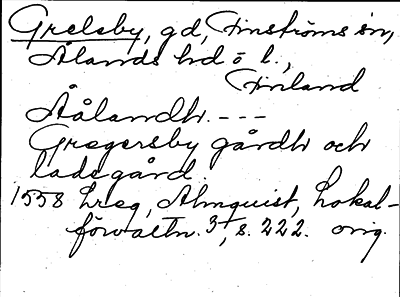 Grelsby, gd, Finströms sn,
Ålands hd o l.,
Finland
Åålandh. ---
Gregersby gårdh och
ladegård.
1558 hreg, Almquist, Lokal-
förvaltn. 3, s. 222. orig.